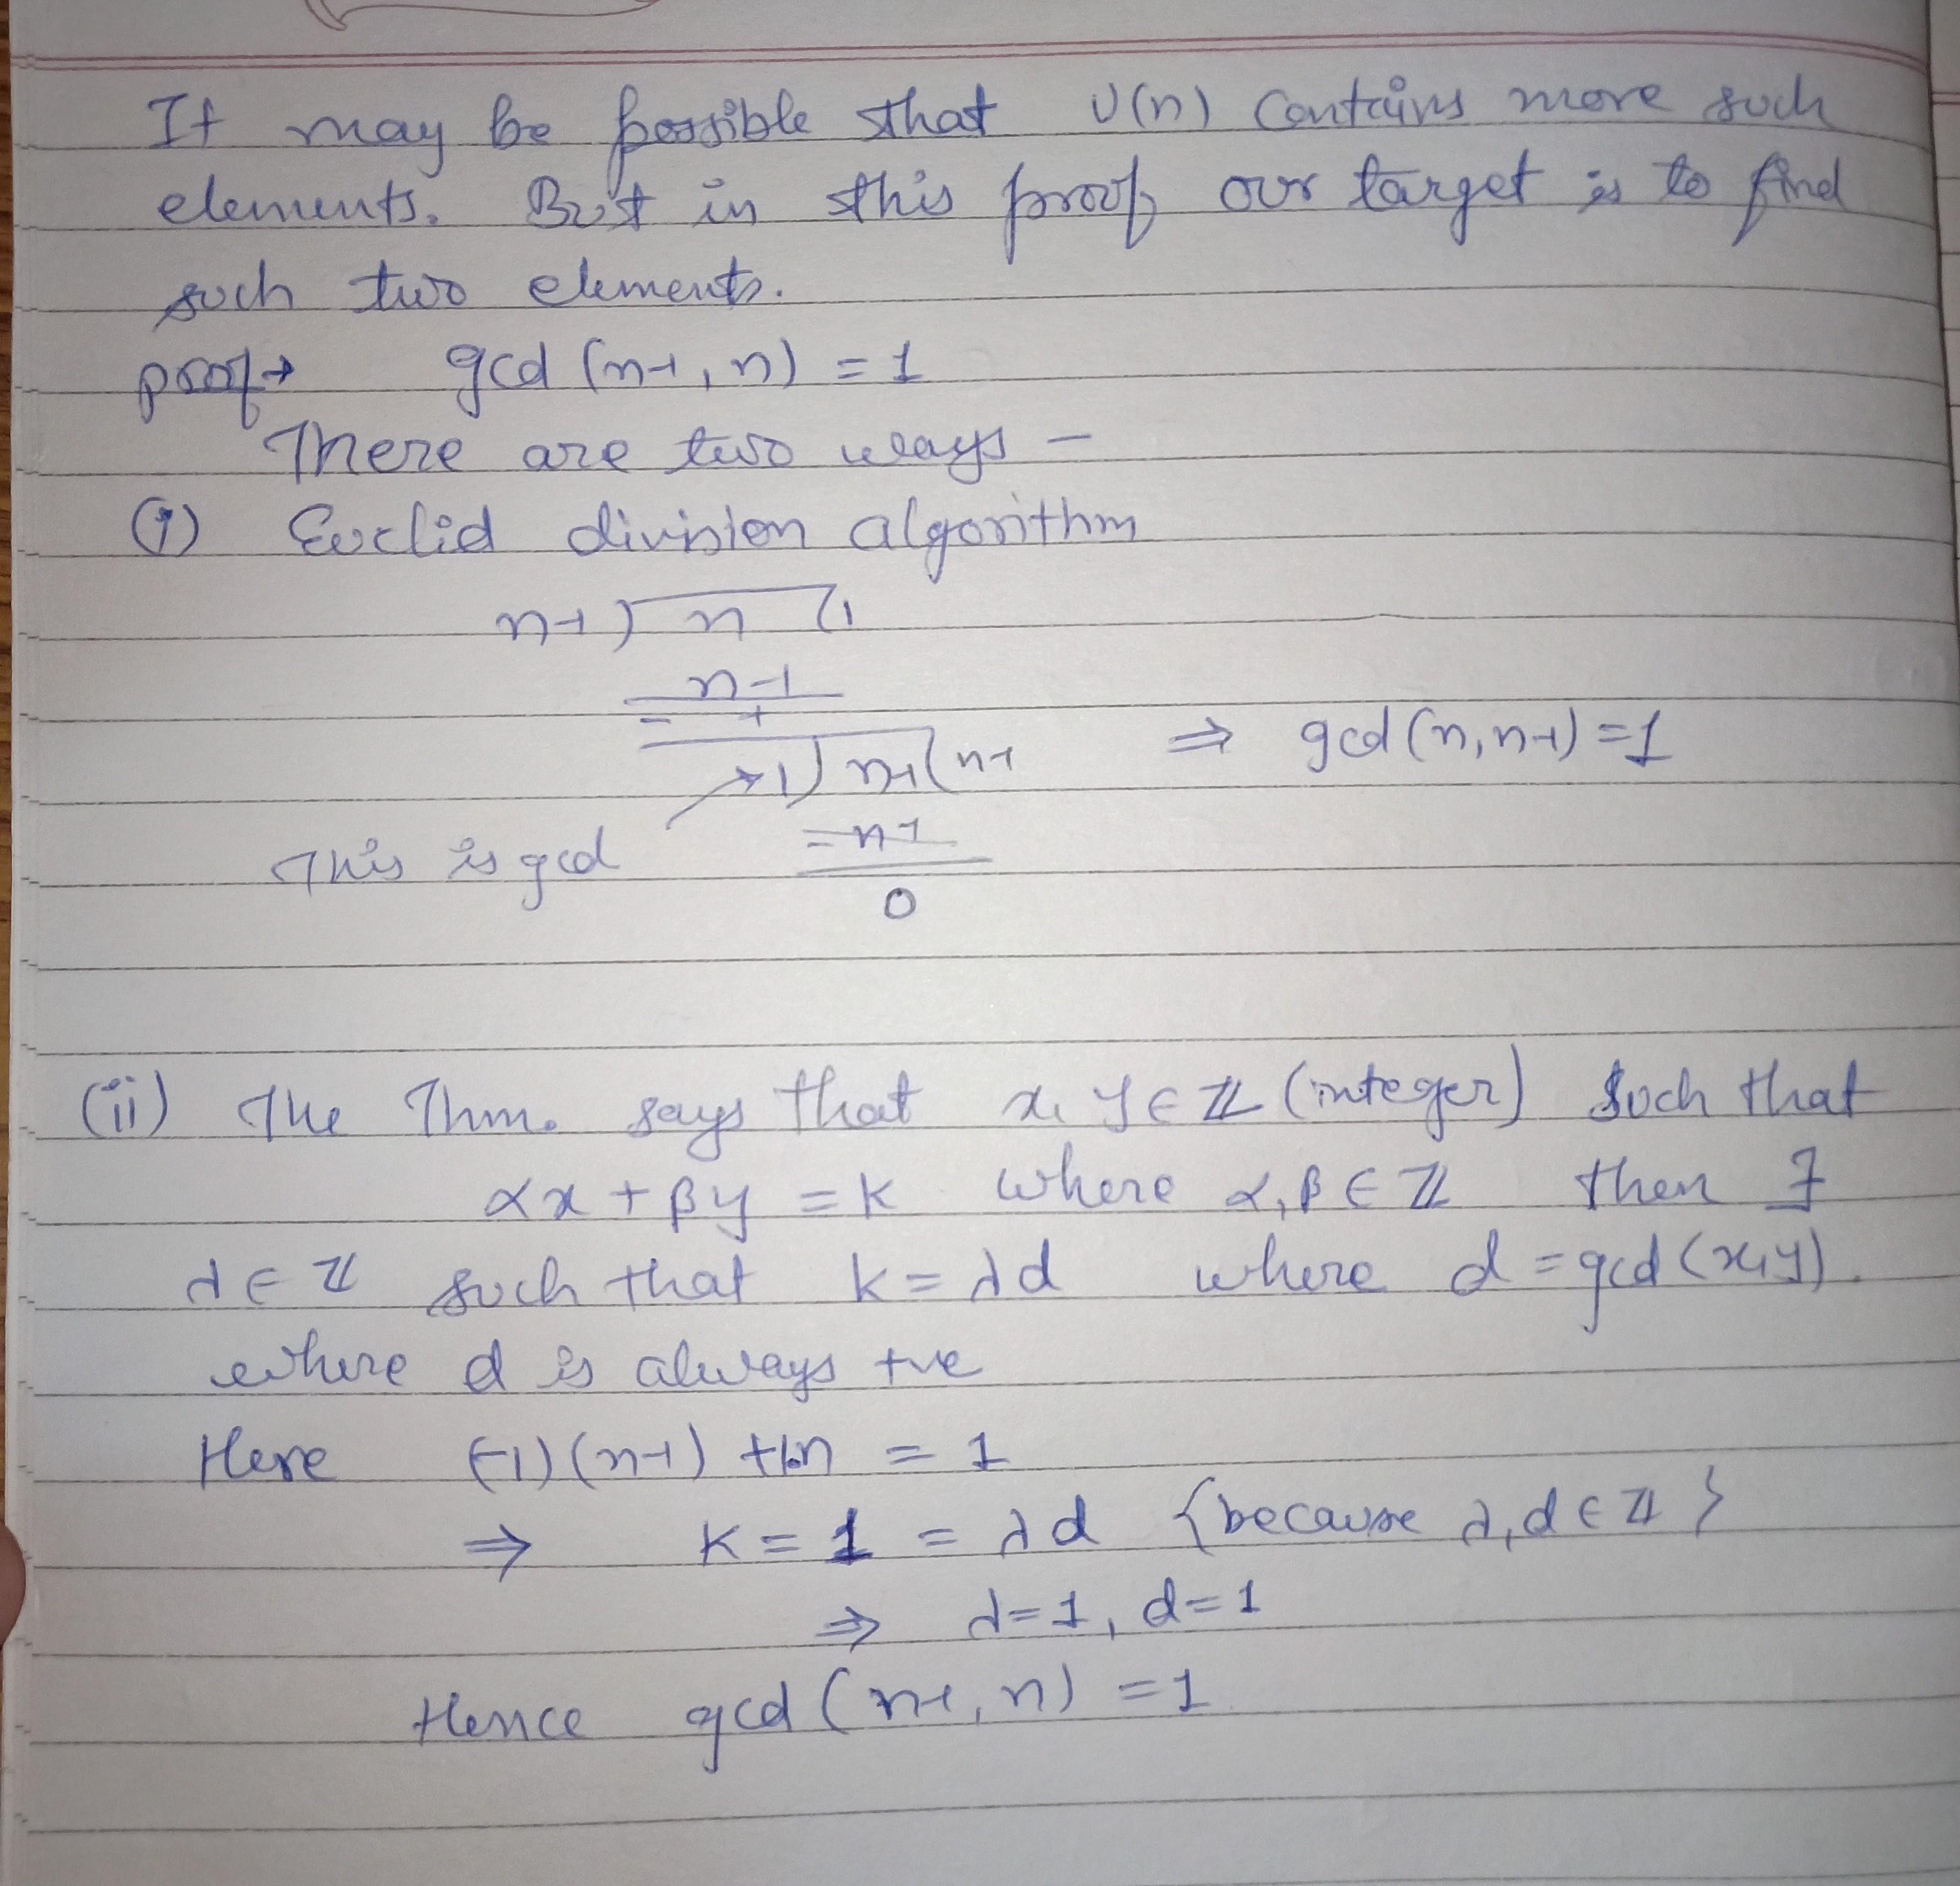 It may be possible that U(n) contains more such
elements. But in this proof our target is to find
such two elements.
proof→ gcd (n-1, n) = 1
There are two ways –
(i) Euclid division algorithm
n-1 ) n ( 1
n-1
- +
→ 1 ) n-1 ( n-1 ⇒ gcd (n, n-1) = 1
This is gcd - n-1
0
(ii) The Thm. says that x, y ∈ ℤ (integer) such that
αx + βy = k where α, β ∈ ℤ then ∃
λ ∈ ℤ such that k = λd where d = gcd (x, y).
where d is always +ve
Here (-1)(n-1) + 1.n = 1
⇒ k = 1 = λd {because λ, d ∈ ℤ}
⇒ λ = 1, d = 1
Hence gcd (n-1, n) = 1